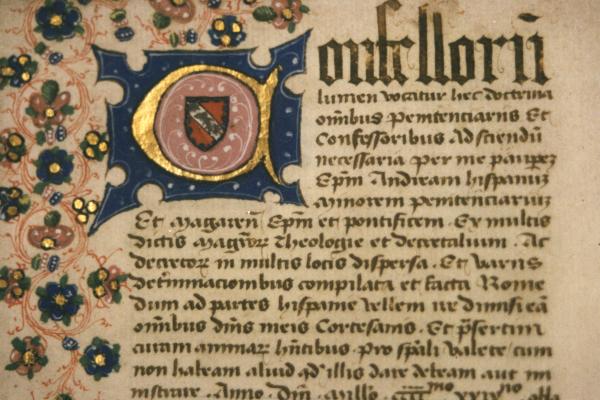 Confessorũ
lumen vocatur hec doctrina
om̃ibus penitenciariis Et
Confessoribus Ad sciendũ
necessaria per me pauperẽ
Ep̃m Andream hispanuʒ
minorem penitenciariuʒ
Et magareñ Ep̃m et pontificem. Ex multis
dictis magr̃orʒ Theologie et decretalium. Ac
decretorʒ in multis locis dispersa. Et variis
det̃minacionibus compilata et facta Rome
dum ad partes hispanie vellem ire dimisi eã
om̃ibus dñis meis Cortesanis. Et p̃sertim
curam animarʒ hñtibus. Pro sp̃ali valete cum
non habeam aliud qd̃ illis dare debeam aut mi
nistrare. Anno. Dñi. Millo.